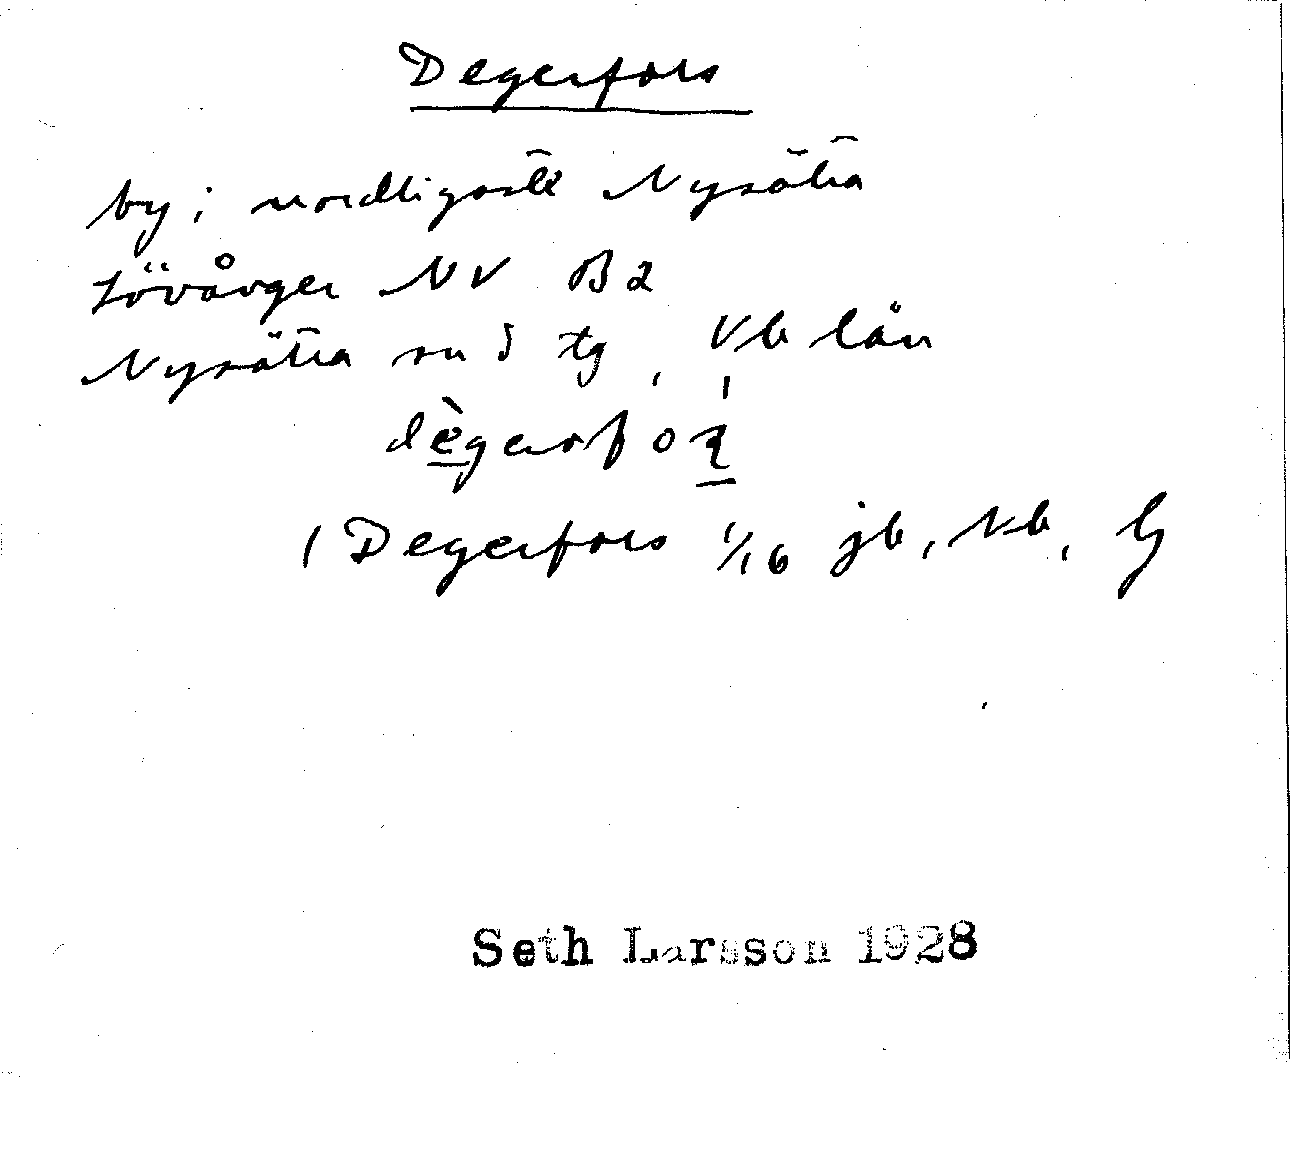 Degerfors
by i nordligaste Nysätra
Lövånger NV B2
Nysätra sn S tg, Vb län
dègerfoʂ
(Degerfors 1/16 jb,
Seth Larsson 1928